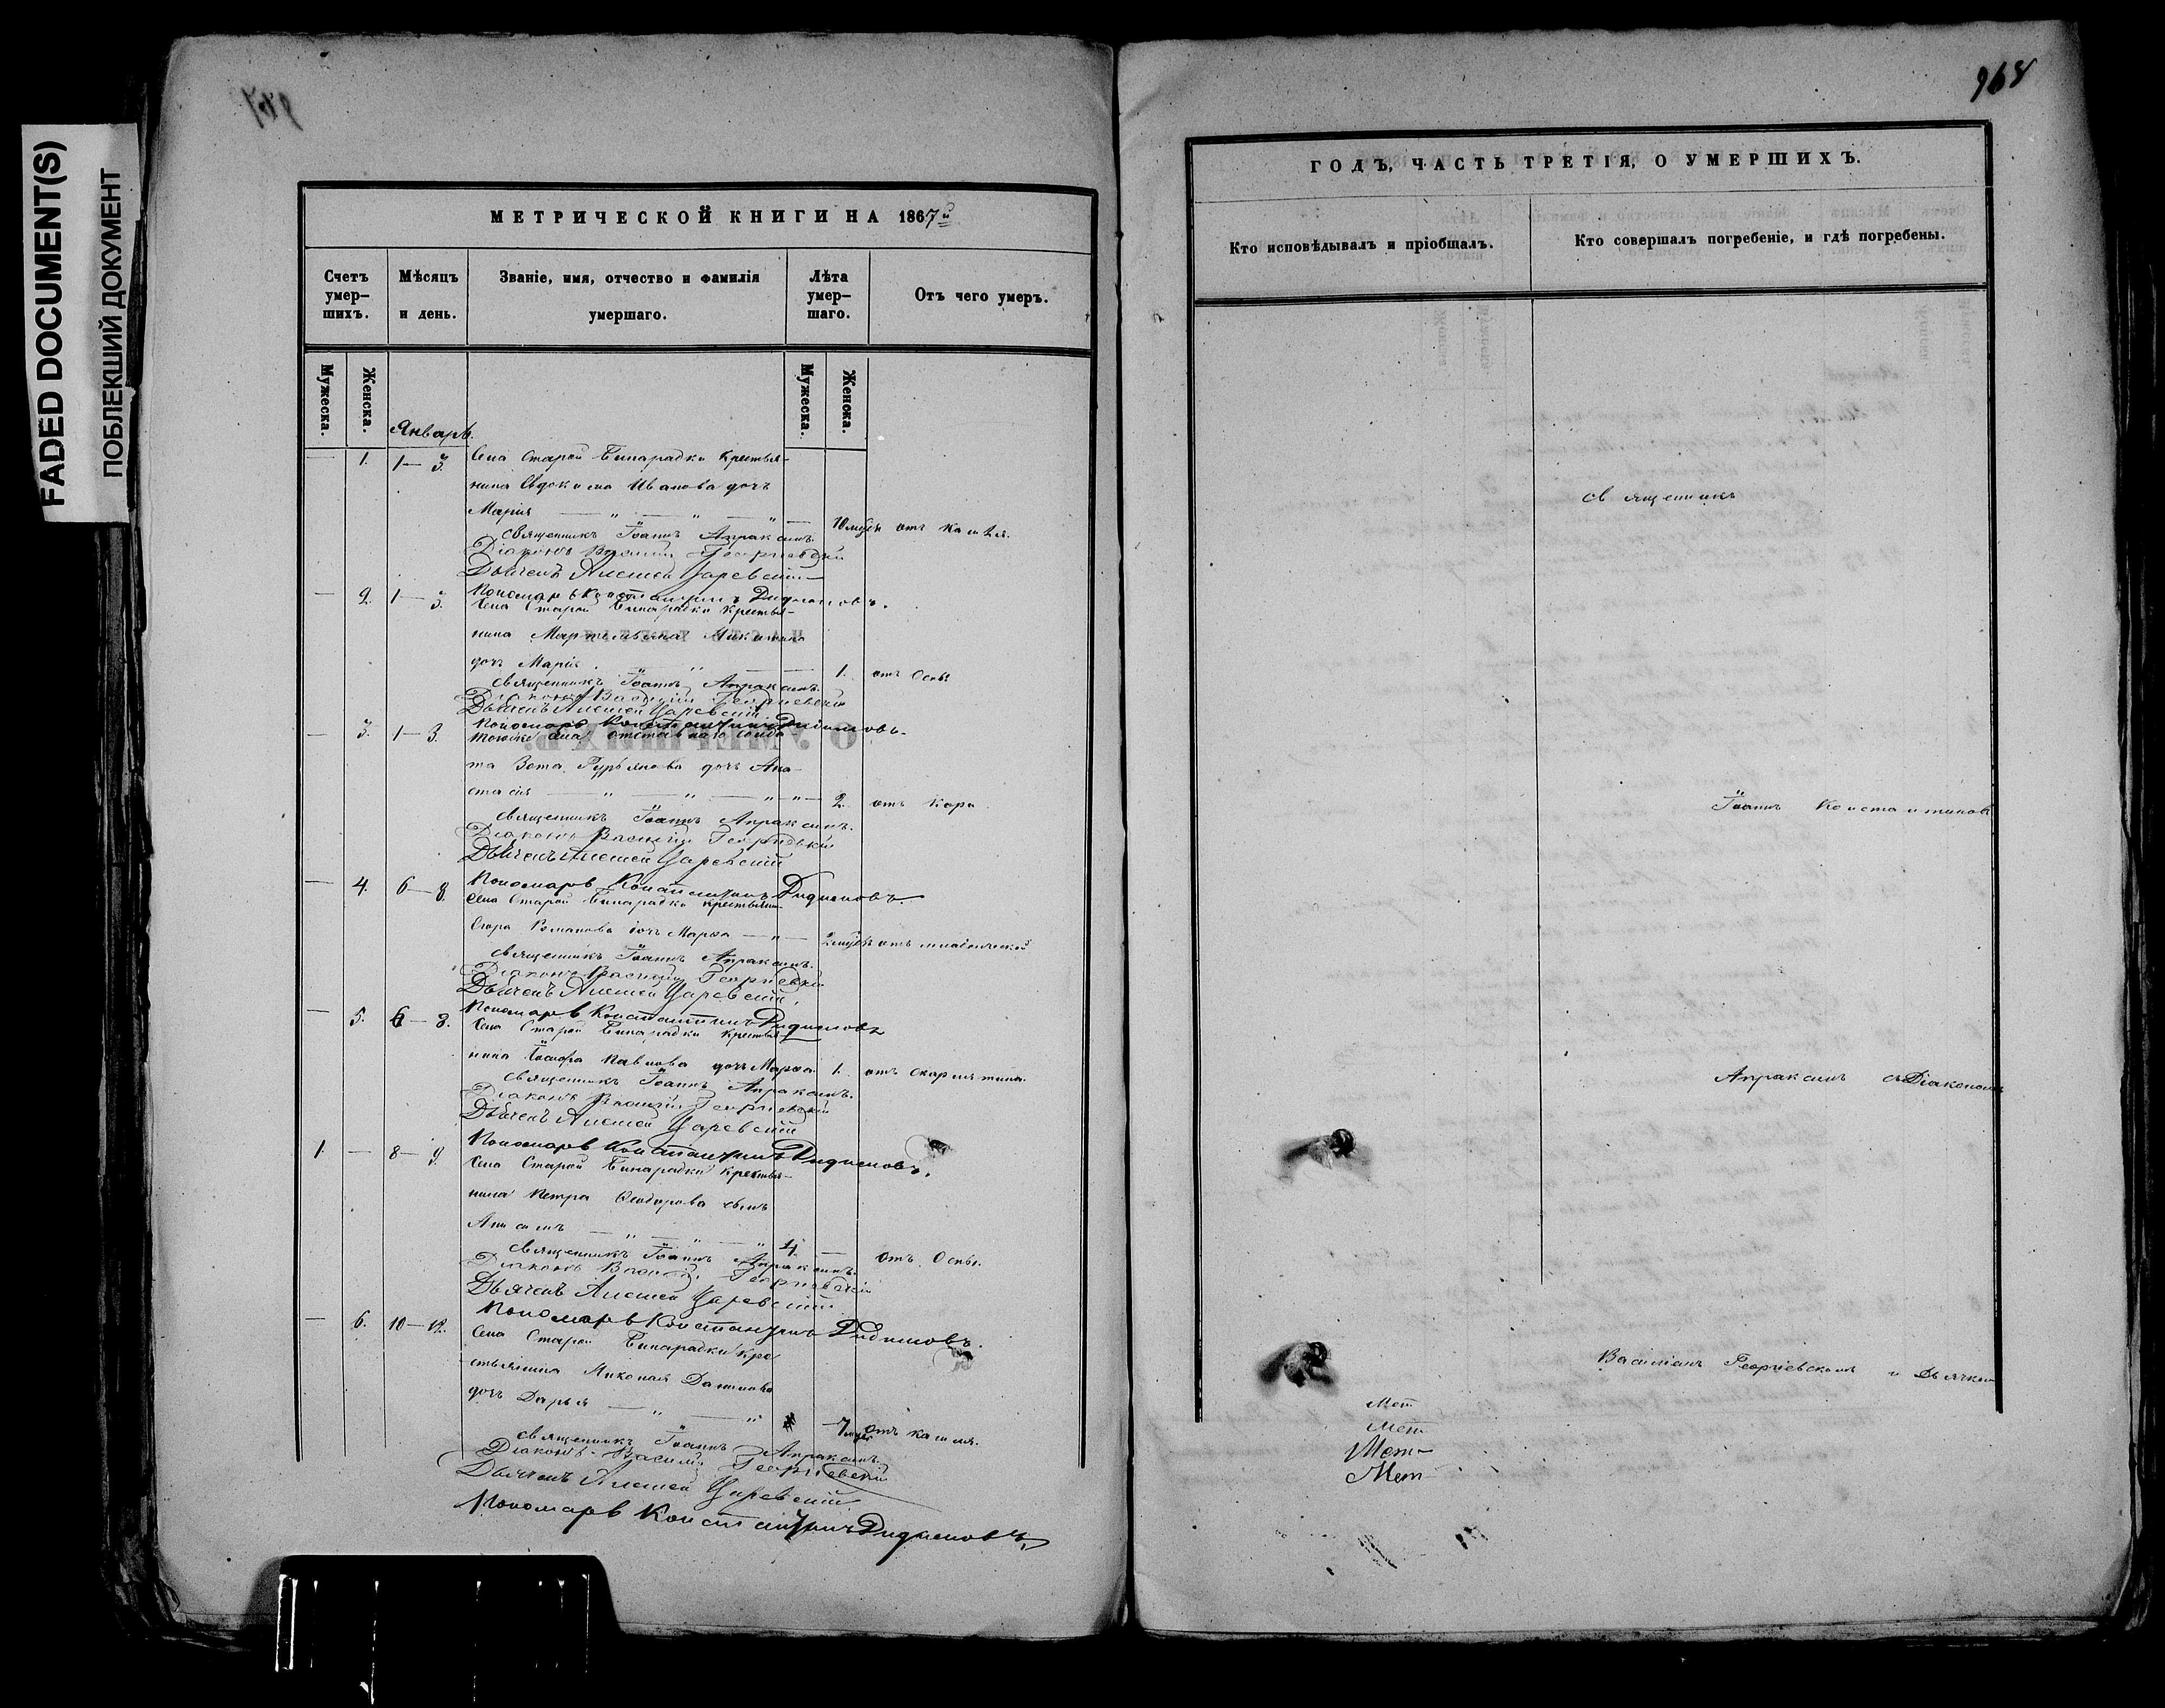 FADED DOCUMENT(S)
ПОБЛЕКШИЙ ДОКУМЕНТ
МЕТРИЧЕСКОЙ КНИГИ НА 1867й
Счетъ умер-шихъ.
Мѣсяцъ и день.
Званіе, имя, отчество и фамилія умершаго.
Лѣта умер-шаго.
Отъ чего умеръ.
Мужеска.
Женска.
Мужеска.
Женска.
Январь.
1. 1—3. Села Старой Бинарадки крестья-
нина Евдокима Иванова дочь
Марія
отъ кашля.
Священникъ Іоаннъ Апраксинъ.
Діаконъ Василій Георгіевскій
Дьячекъ Алексей Царевскій
Пономарь Константинъ Дидимовъ.
2. 1—3. Села Старой Бинарадки крестья-
нина
дочь Марія 1. отъ Оспы
Священникъ Іоаннъ Апраксинъ.
Діаконъ Василій Георгіевскій
Дьячекъ Алексей Царевскій
Пономарь Константинъ Дидимовъ.
3. 1—3. Тогоже села отставнаго солда-
та Зота Гурьянова дочь Ана-
стасія 2. отъ кори
Священникъ Іоаннъ Апраксинъ.
Діаконъ Василій Георгіевскій
Дьячекъ Алексей Царевскій
Пономарь Константинъ Дидимовъ.
4. 6—8. Села Старой Бинарадки крестьянин
Романова дочь Марфа отъ младенческой
Священникъ Іоаннъ Апраксинъ.
Діаконъ Василій Георгіевскій
Дьячекъ Алексей Царевскій
Пономарь Константинъ Дидимовъ
5. 6—8. Села Старой Бинарадки крестья-
нина Павлова дочь Марфа 1. отъ скарлатина.
Священникъ Іоаннъ Апраксинъ.
Діаконъ Василій Георгіевскій
Дьячекъ Алексей Царевскій
Пономарь Константинъ Дидимовъ.
1. — 8—9. Села Старой Бинарадки крестья-
нина Петра Ѳеодорова сынъ
4 — отъ Оспы.
Священникъ Іоаннъ Апраксинъ.
Діаконъ Василій Георгіевскій
Дьячекъ Алексей Царевскій
Пономарь Константинъ Дидимовъ.
6. 10—12. Села Старой Бинарадки кре
стьянина Николая Данилова
дочь Дарья
отъ кашля.
Священникъ Іоаннъ Апраксинъ.
Діаконъ Василій Георгіевскій
Дьячекъ Алексей Царевскій
Пономарь Константинъ Дидимовъ
968
ГОДЪ, ЧАСТЬ ТРЕТІЯ, О УМЕРШИХЪ.
Кто исповѣдывалъ и пріобщалъ.
Кто совершалъ погребеніе, и гдѣ погребены.
Священникъ
Іоаннъ Константинов
Апраксинъ съ Діакономъ
Василіемъ Георгіевскимъ и Дьячкомъ
Мет
Мет
Мет
Мет